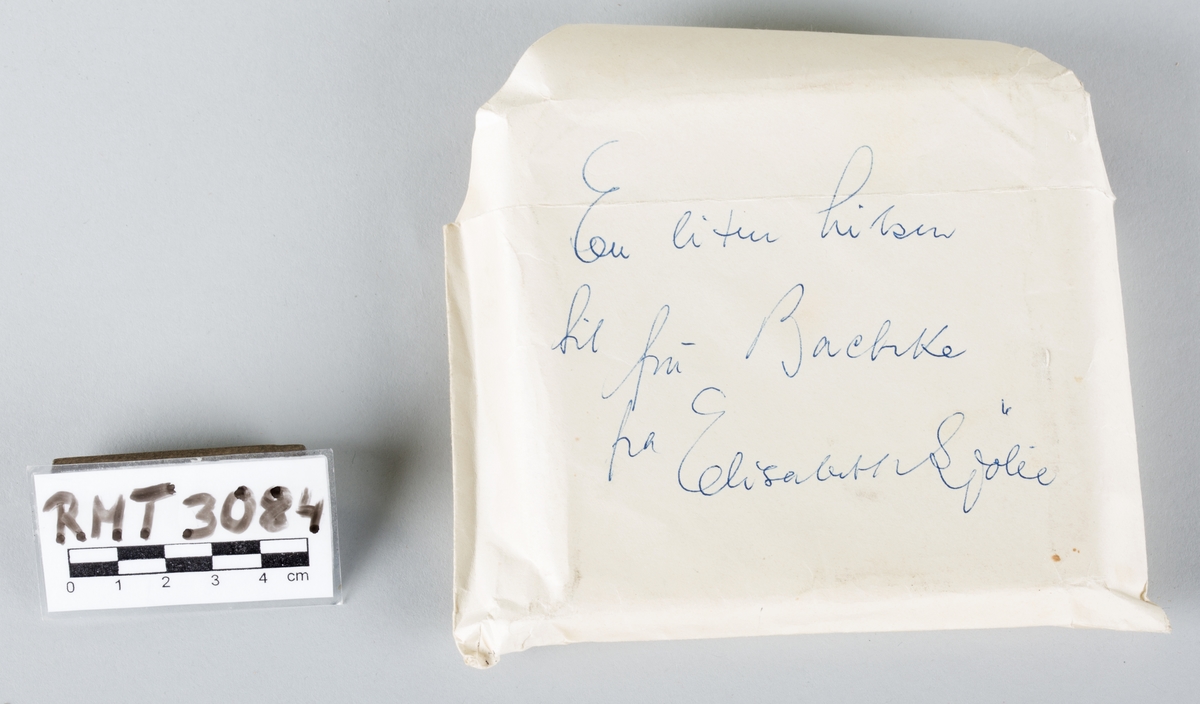 En liten hilsen
til frú Baetke
fra Elisabeth Sjölie
RMT 3084
0 1 2 3 4 cm